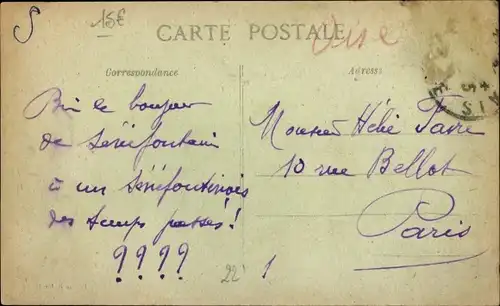 S
15E
CARTE POSTALE
Oise
Correspondance
Adresse
Bien le bonjour
de Sénéfontain
à un Sénéfontinois
des temps passés!
? ? ? ?
Monsieur Hélie Favre
10 rue Bellot
Paris
22
1